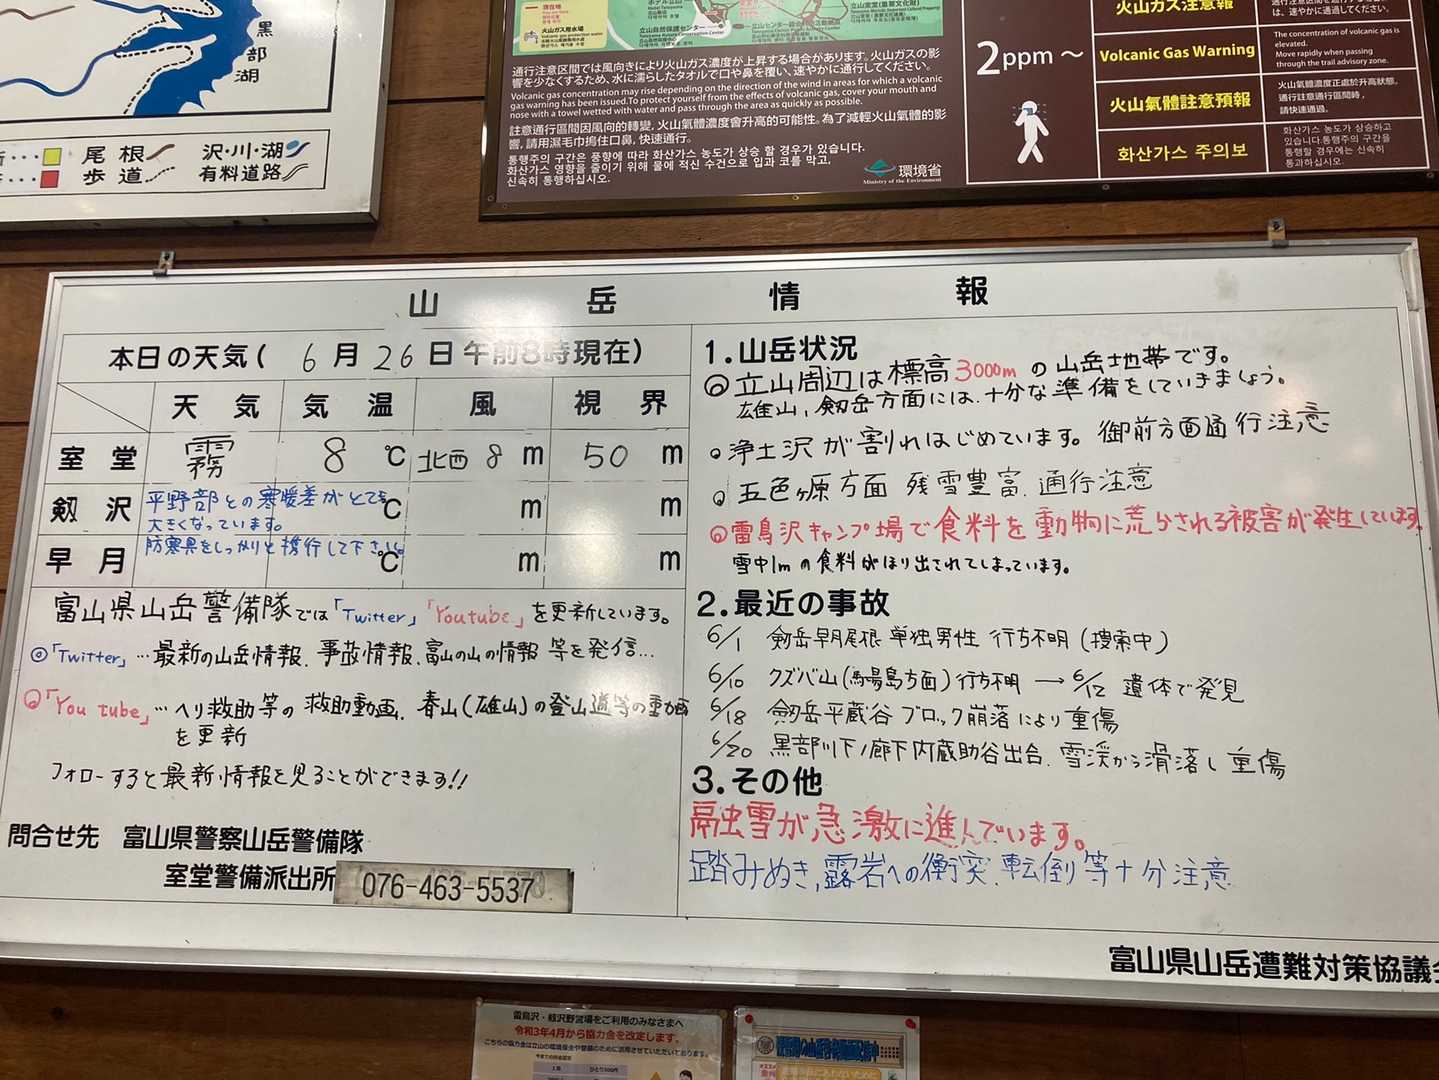 黒部湖
尾根
歩道
沢・川・湖
有料道路
現在地
火山ガス用水場
立山自然保護センター
通行注意区間では風向きにより火山ガス濃度が上昇する場合があります。火山ガスの影
響を少なくするため、水に濡らしたタオルで口や鼻を覆い、速やかに通行してください。
Volcanic gas concentration may rise depending on the direction of the wind in areas for which a volcanic
gas warning has been issued. To protect yourself from the effects of volcanic gas, cover your mouth and
nose with a towel wetted with water and pass through the area as quickly as possible.
註意通行區間因風向的轉變，火山氣體濃度會升高的可能性。為了減輕火山氣體的影
響，請用濕毛巾摀住口鼻，快速通行。
통행주의 구간은 풍향에 따라 화산가스 농도가 상승 할 경우가 있습니다.
화산가스 영향을 줄이기 위해 물에 적신 수건으로 입과 코를 막고,
신속히 통행하십시오.
環境省
Ministry of the Environment
2ppm～
火山ガス注意報
は、速やかに通過してください。
Volcanic Gas Warning
The concentration of volcanic gas is
elevated.
Move rapidly when passing
through the trail advisory zone.
火山氣體註意預報
火山氣體濃度正處於升高狀態，
通行註意通行區間時，
請快速通過。
화산가스 주의보
화산가스 농도가 상승하고
있습니다.통행주의 구간을
통행할 경우에는 신속히
통과하십시오.
山岳情報
本日の天気( 6月26日午前8時現在)
天気 気温 風 視界
室堂 霧 8℃ 北西8m 50m
剱沢 ℃ m m
平野部との寒暖差がとても
大きくなっています。
早月 ℃ m m
防寒具をしっかりと携行して下さい。
富山県山岳警備隊では「Twitter」「Youtube」を更新しています。
◎「Twitter」…最新の山岳情報、事故情報、富山の山の情報 等を発信…
◎「You tube」…ヘリ救助等の救助動画、春山(雄山)の登山道等の動画
を更新
フォローすると最新情報を見ることができます!!
問合せ先 富山県警察山岳警備隊
室堂警備派出所 076-463-5537
1.山岳状況
◎立山周辺は標高3000mの山岳地帯です。
雄山、剱岳方面には、十分な準備をしていきましょう。
○浄土沢が割れはじめています。御前方面通行注意
○五色ヶ原方面 残雪豊富、通行注意
◎雷鳥沢キャンプ場で食料を動物に荒らされる被害が発生しています。
雪中1mの食料がほり出されてしまっています。
2.最近の事故
6/1 剱岳早月尾根 単独男性 行方不明(捜索中)
6/10 クズバ山(馬場島方面)行方不明 → 6/12 遺体で発見
6/18 剱岳平蔵谷 ブロック崩落により重傷
6/20 黒部川下ノ廊下内蔵助谷出合、雪渓から滑落し重傷
3.その他
融雪が急激に進んでいます。
踏みぬき、露岩への衝突、転倒等十分注意
富山県山岳遭難対策協議会
雷鳥沢・剱沢野営場をご利用のみなさまへ
令和3年4月から協力金を改定します。